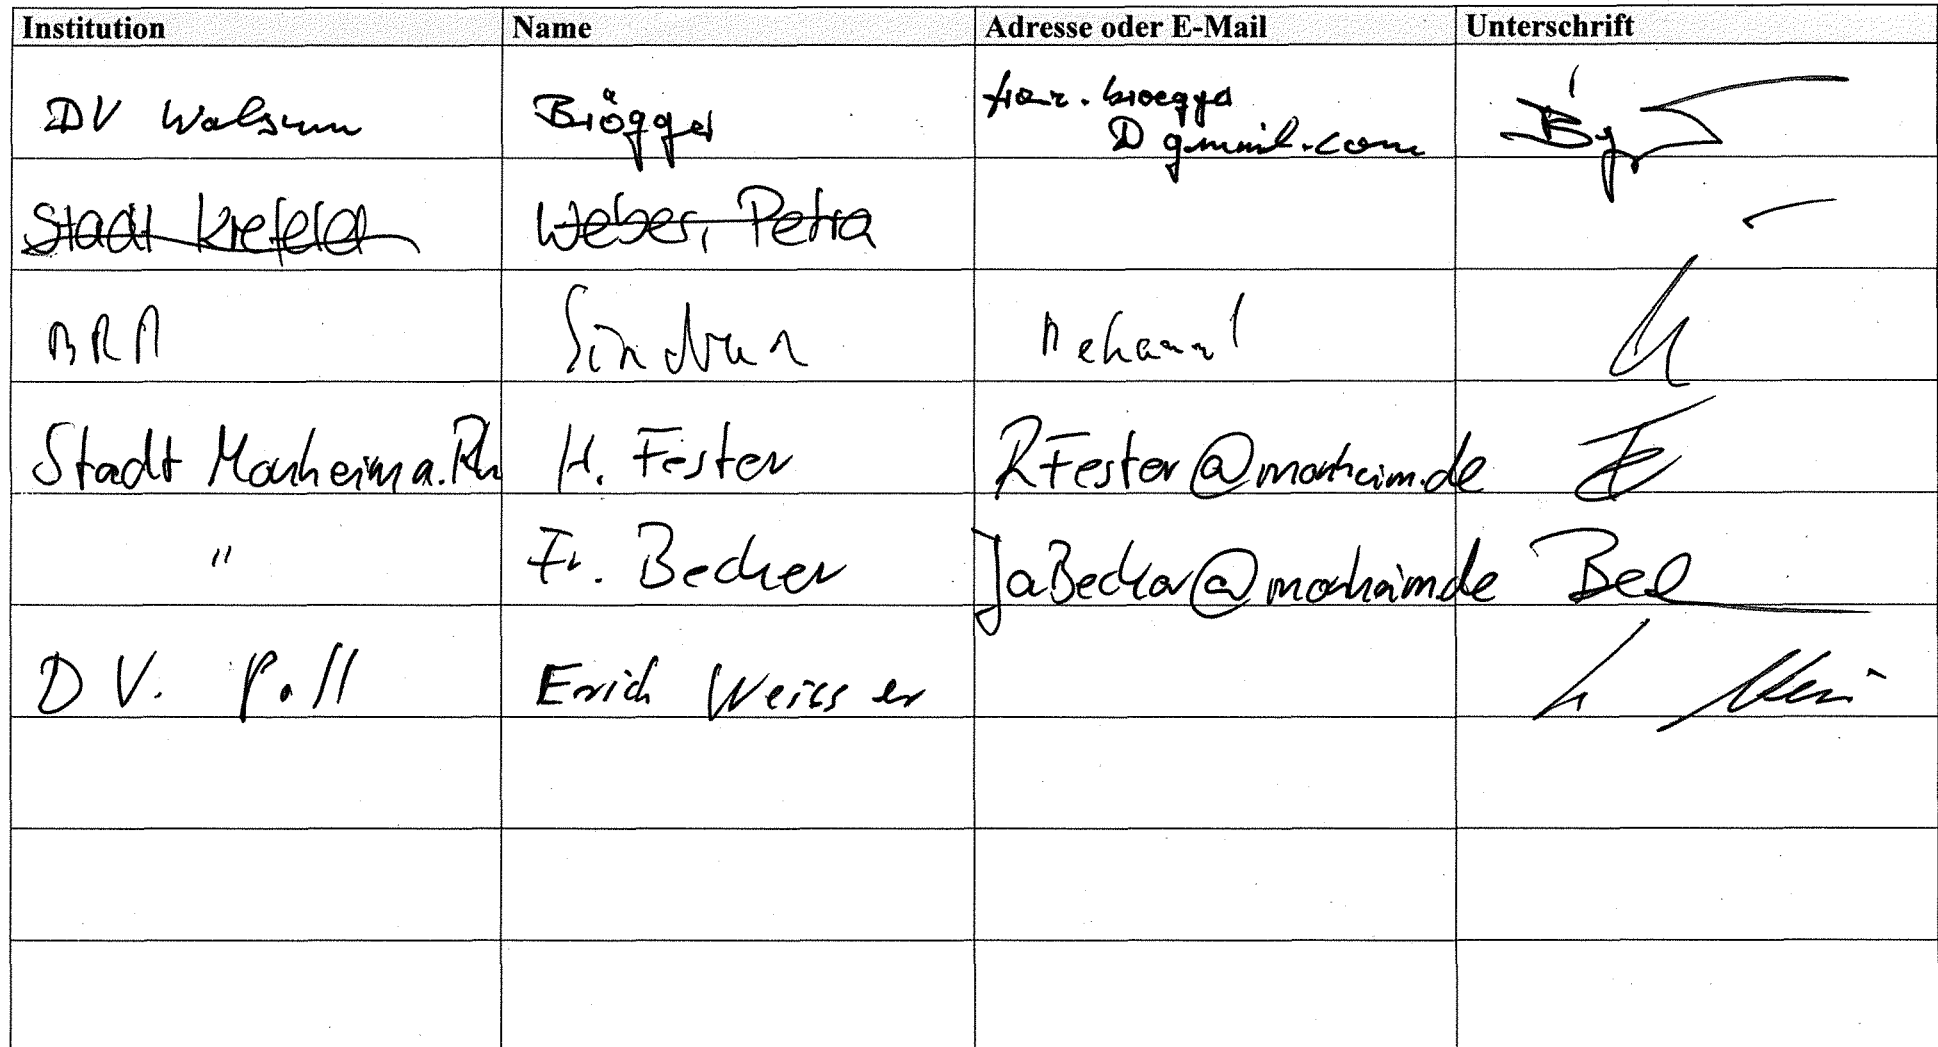 Institution Name Adresse oder E-Mail Unterschrift
DV Walsum Brögger franz.broegger
@ gmail.com
Stadt Krefeld Weber, Petra
BRA bekannt
Stadt Monheim a. Rh H. Fester RFester@monheim.de
" Fr. Becker JaBecker@monheim.de
DV. Poll Erich Weisser